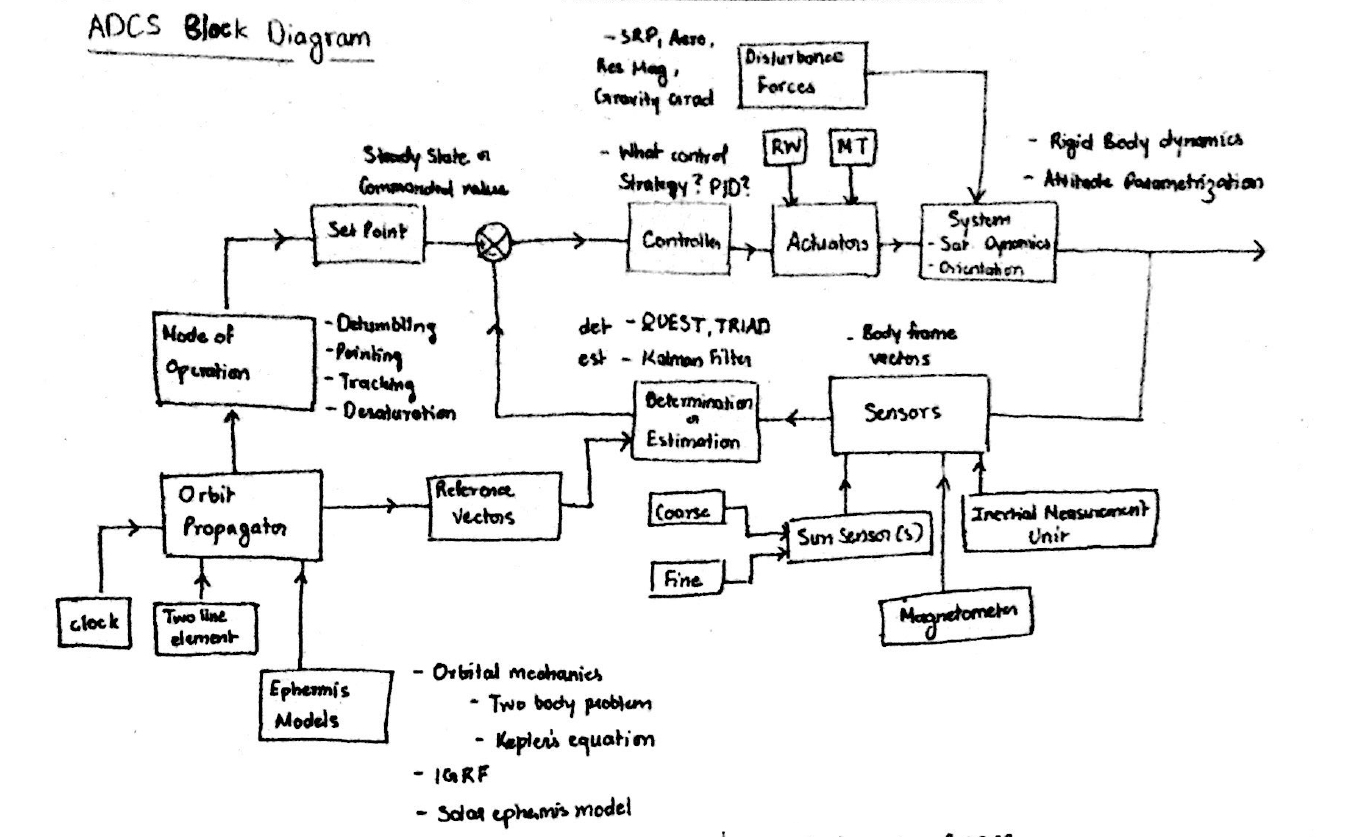 ADCS Block Diagram
- SRP, Aero,
Res Mag,
Gravity Grad
Disturbance
Forces
Steady State or
Commanded value
- What control
Strategy? PID?
RW
MT
- Rigid Body dynamics
- Attitude Parametrization
Set Point
Controller
Actuators
System
- Sat Dynamics
- Orientation
Mode of
Operation
- Detumbling
- Pointing
- Tracking
- Desaturation
det - QUEST, TRIAD
est - Kalman Filter
- Body frame
vectors
Determination
or
Estimation
Sensors
Orbit
Propagator
Reference
Vectors
Coarse
Fine
Sun Sensor(s)
Inertial Measurement
Unit
Magnetometer
Clock
Two line
element
Ephermis
Models
- Orbital mechanics
- Two body problem
- Kepler's equation
- IGRF
- Solar ephermis model